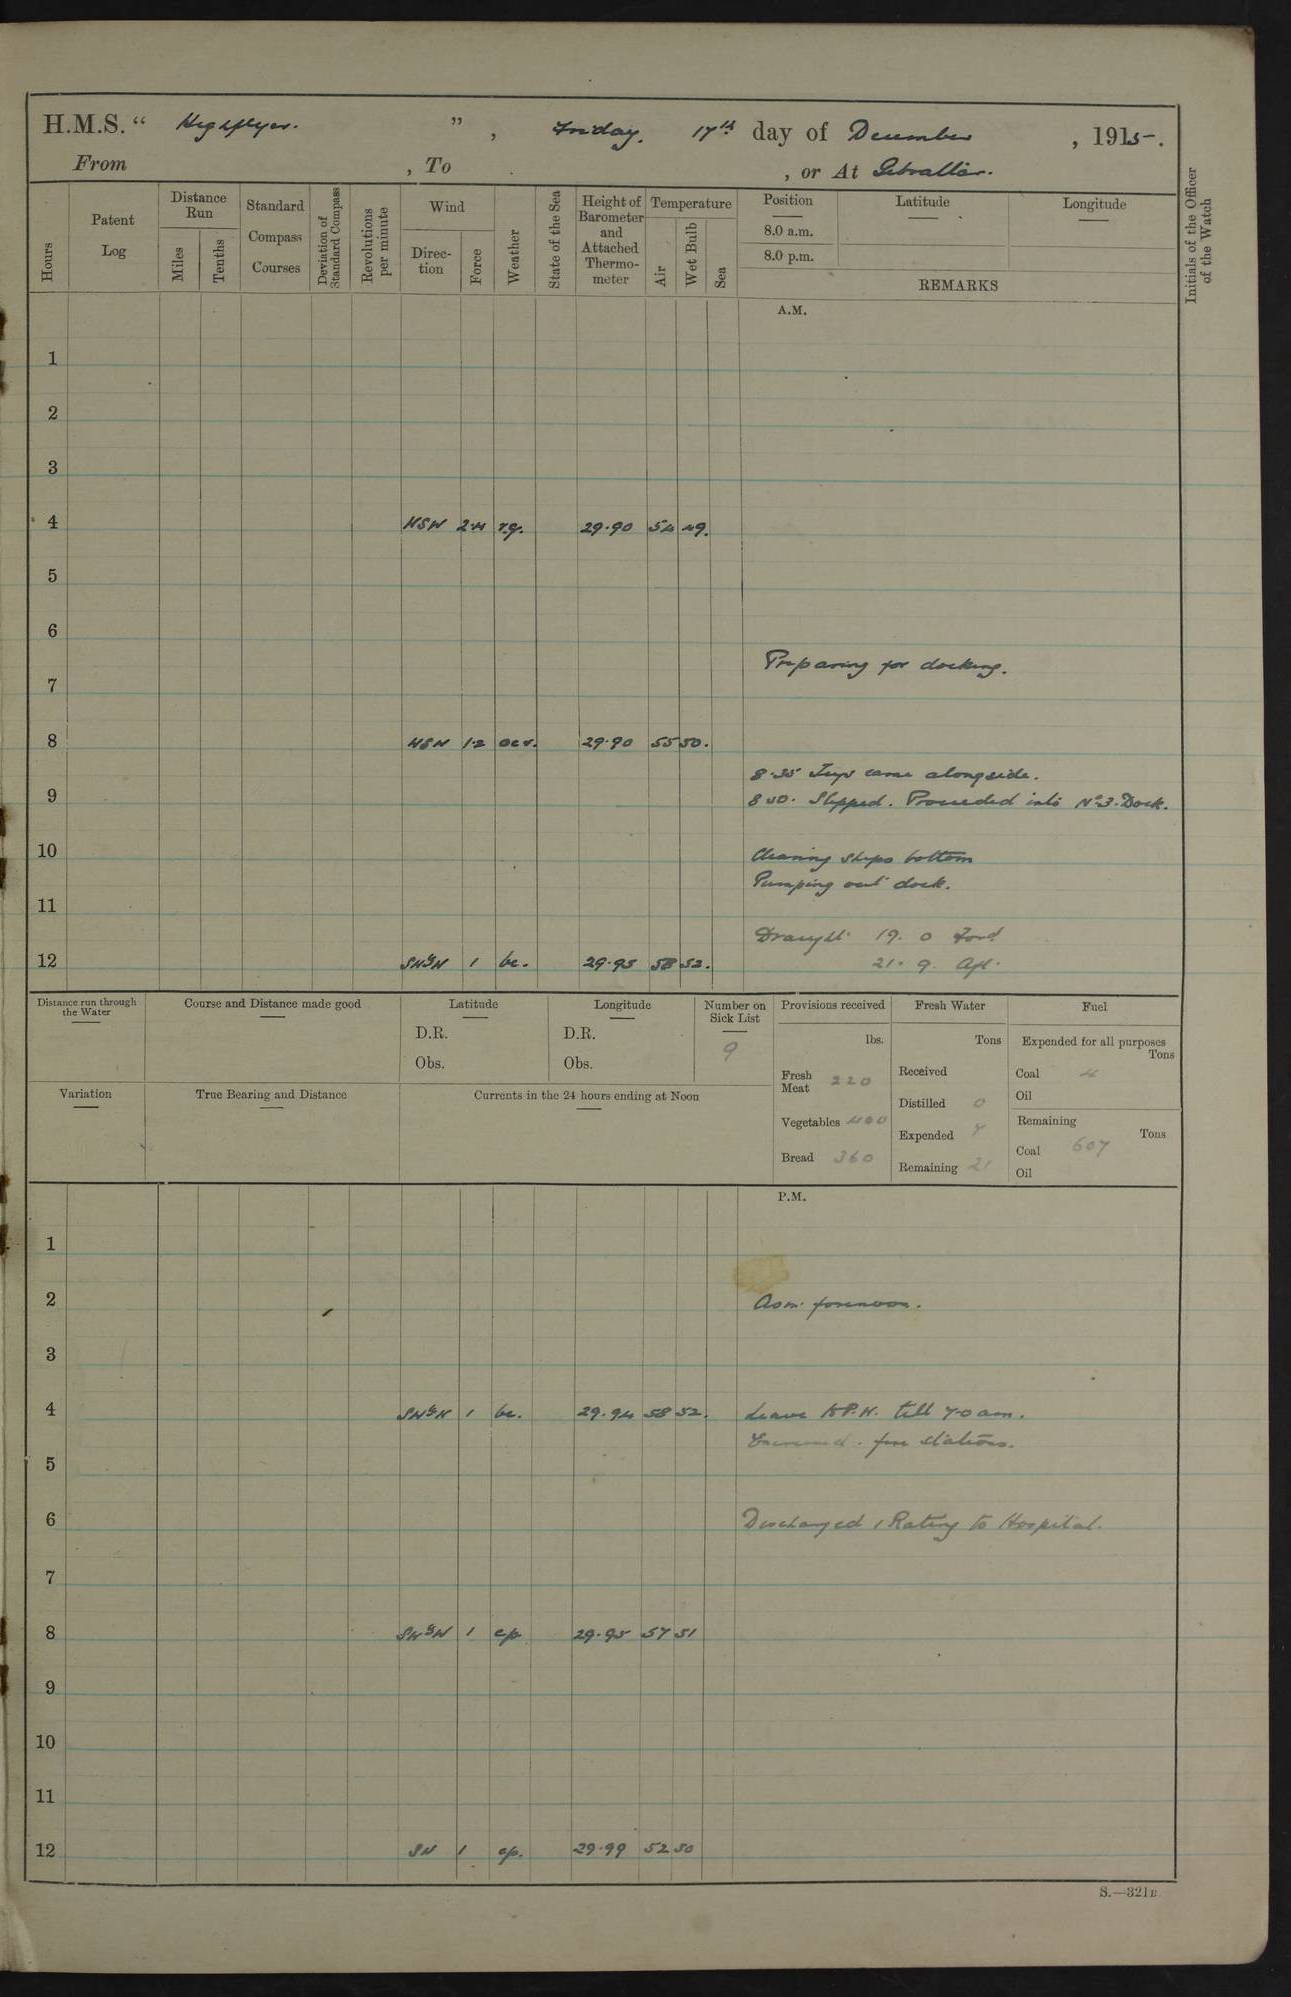 H.M.S. “ Highflyer. ” , Friday. 17th day of December , 1915.
From , To , or At Gibraltar.
Hours
Patent Log
Distance Run
Miles
Tenths
Standard Compass Courses
Deviation of Standard Compass
Revolutions per minute
Wind
Direction
Force
Weather
State of the Sea
Height of Barometer and Attached Thermometer
Temperature
Air
Wet Bulb
Sea
Position
8.0 a.m.
8.0 p.m.
Latitude
Longitude
REMARKS
Initials of the Officer of the Watch
A.M.
1
2
3
4 WSW 2·4 r.q. 29·90 54 49.
5
6
Preparing for docking.
7
8 WSW 1·2 oc r. 29·90 55 50.
8·35 Tugs came alongside.
9 8 50. Slipped. Proceeded into No 3. Dock.
10 Cleaning ships bottom
Pumping out dock.
11
Draught 19. 0 Ford
12 SWbyW 1 bc. 29·95 58 52. 21. 9. Aft.
Distance run through the Water
Course and Distance made good
Latitude
D.R.
Obs.
Longitude
D.R.
Obs.
Number on Sick List
9
Provisions received
lbs.
Fresh Meat 220
Vegetables 400
Bread 360
Fresh Water
Tons
Received
Distilled 0
Expended 7
Remaining 21
Fuel
Expended for all purposes
Tons
Coal 4
Oil
Remaining
Tons
Coal 607
Oil
Variation
True Bearing and Distance
Currents in the 24 hours ending at Noon
P.M.
1
2 As in forenoon.
3
4 SWbyW 1 bc. 29·94 58 52. Leave to P.W. till 7·0 am.
Exercised fire stations.
5
6 Discharged 1 Rating to Hospital.
7
8 SWbyW 1 cp 29·95 57 51
9
10
11
12 SW 1 cp. 29·99 52 50
S.—321B.